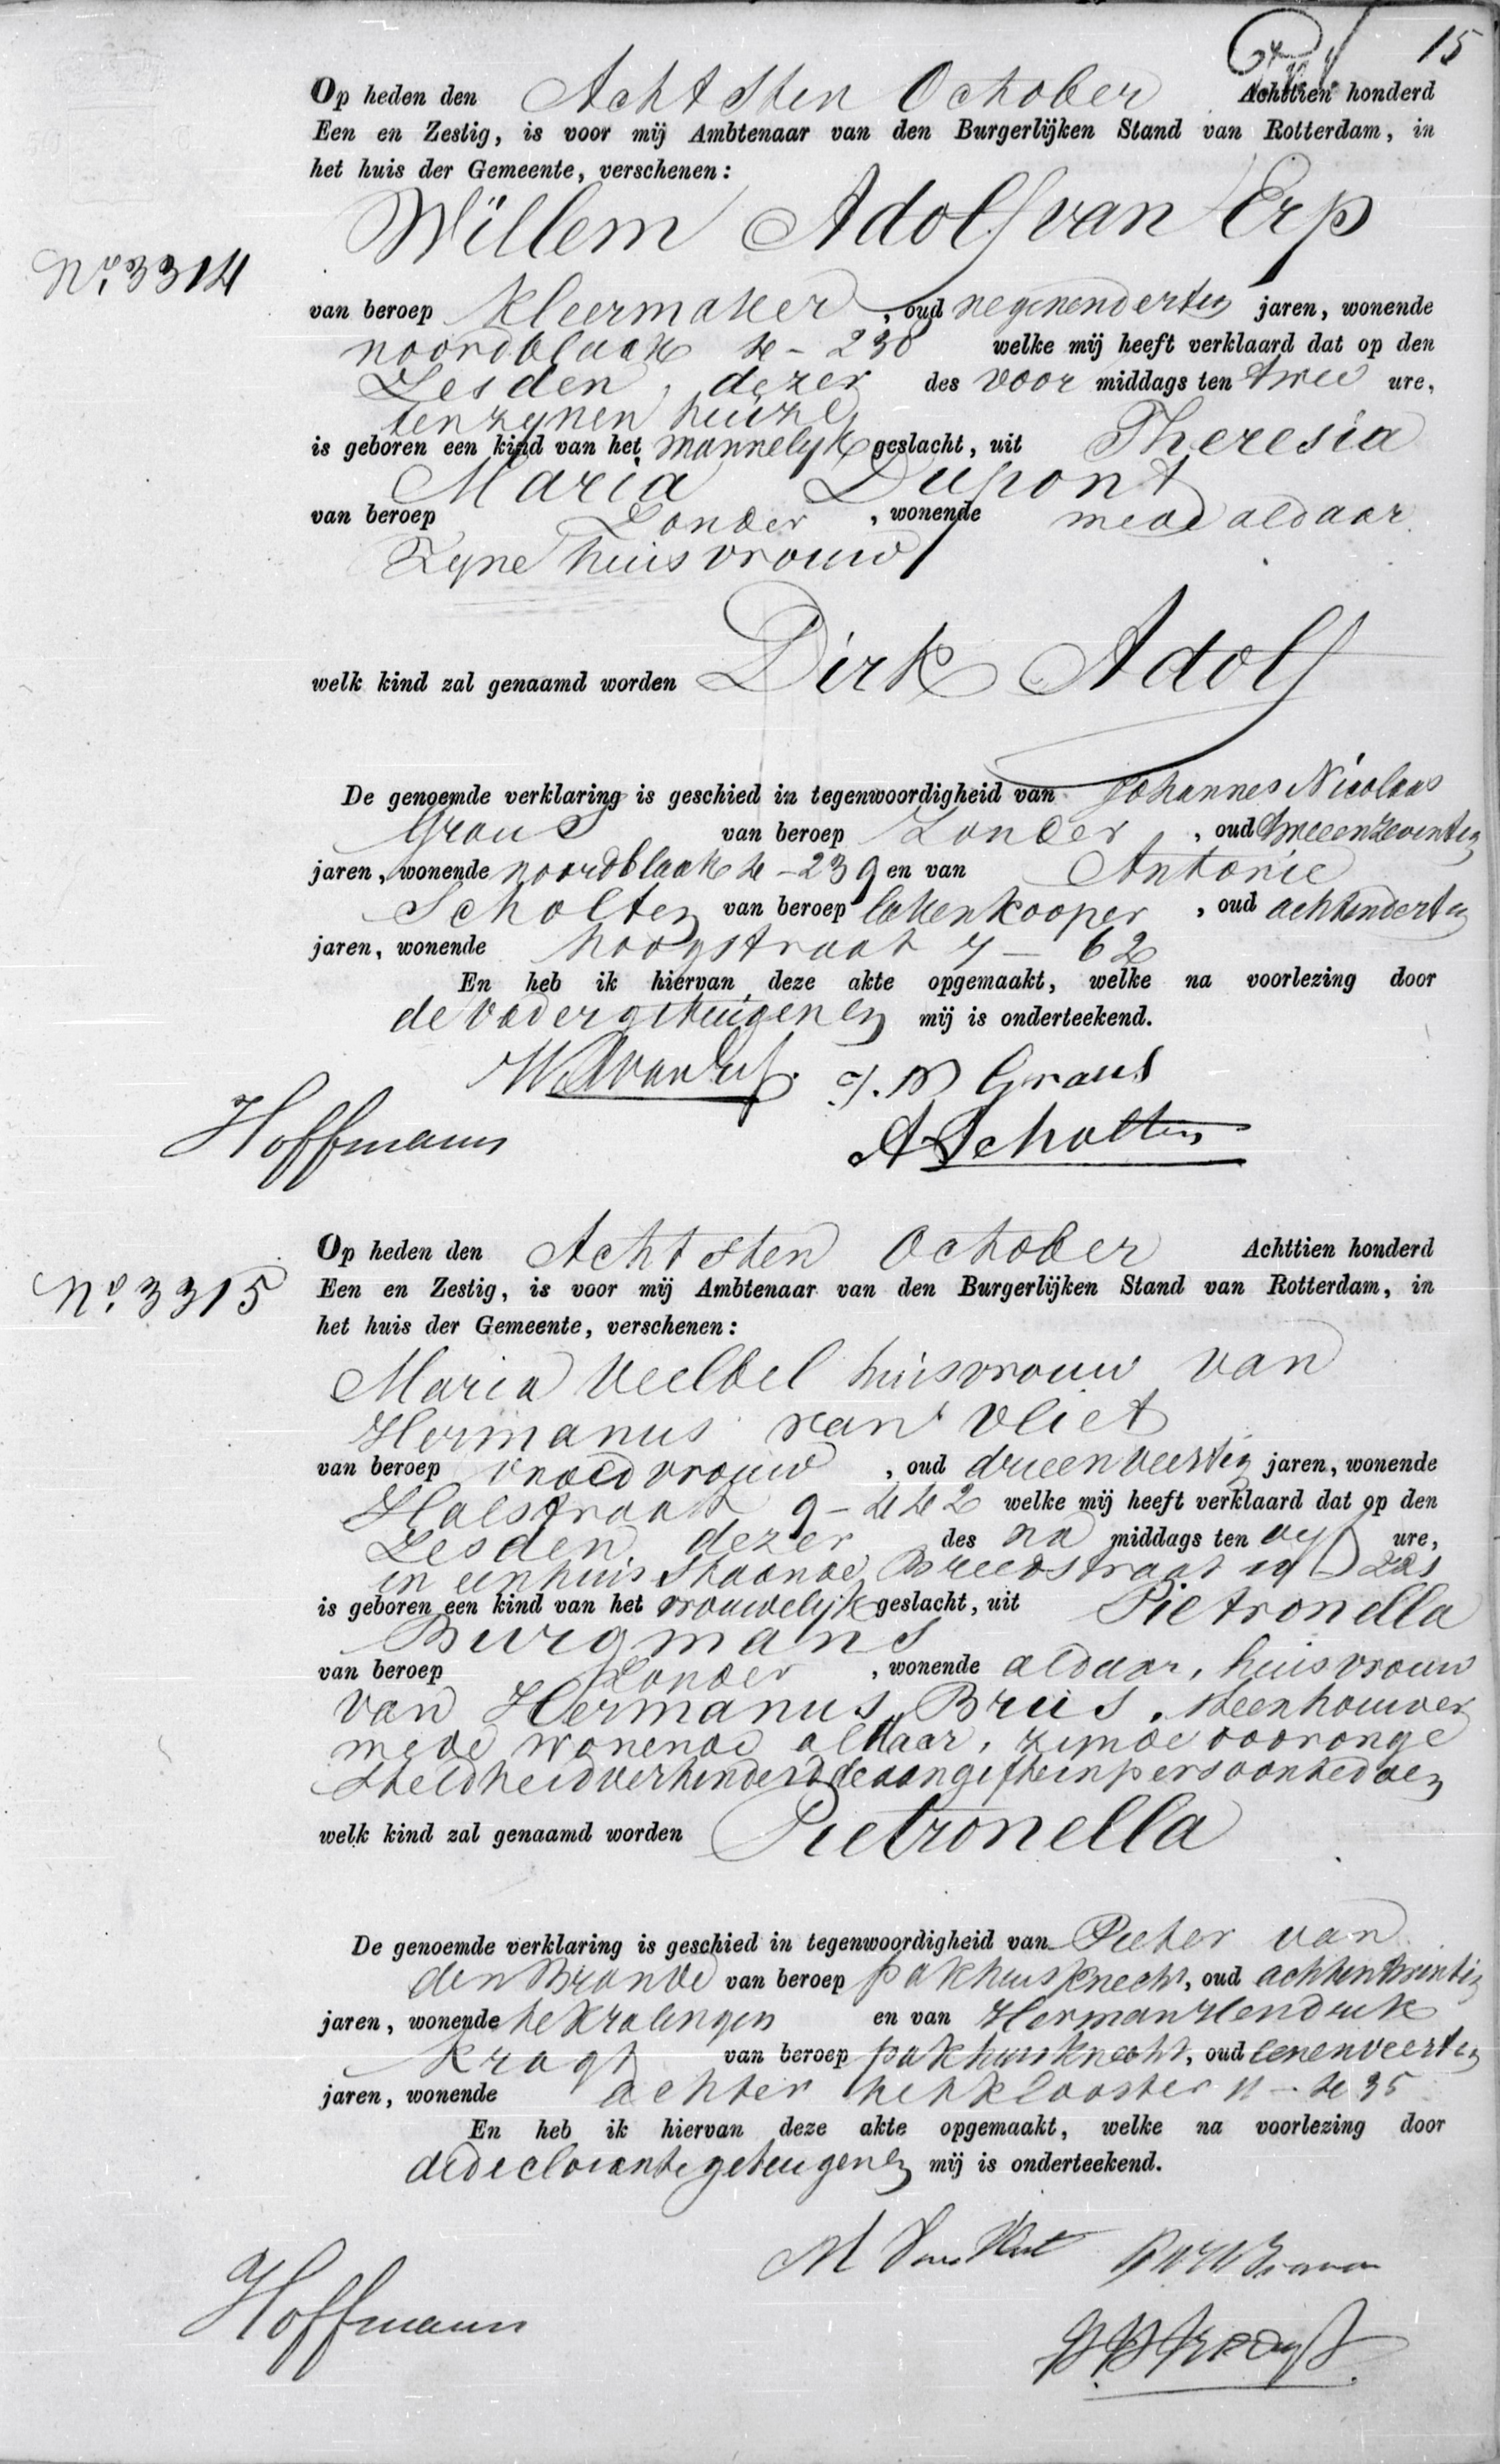 15
Op heden den Achtsten October Achttien honderd
Een en Zestig, is voor mij Ambtenaar van den Burgerlijken Stand van Rotterdam, in
het huis der Gemeente, verschenen:
Willem Adolf van Erp
No. 3314
van beroep kleermaker, oud negenendertig jaren, wonende
noordblaak 4-238 welke mij heeft verklaard dat op den
Zesden dezer des voor middags ten twee ure,
ten zynen huize
is geboren een kind van het mannelyk geslacht, uit Theresia
Maria Dupont
van beroep Zonder, wonende mede aldaar
Zyne huisvrouw
welk kind zal genaamd worden Dirk Adolf
De genoemde verklaring is geschied in tegenwoordigheid van Johannes Nicolaas
Graus van beroep Zonder, oud tweeenzeventig
jaren, wonende noordblaak 4-239 en van Antonie
Scholten van beroep lakenkooper, oud achtendertig
jaren, wonende hoogstraat 7-62
En heb ik hiervan deze akte opgemaakt, welke na voorlezing door
de vader getuigen en mij is onderteekend.
W A van Erp. J. N Graus
Hoffmann
A Scholten
Op heden den Achtsten October Achttien honderd
No. 3315
Een en Zestig, is voor mij Ambtenaar van den Burgerlijken Stand van Rotterdam, in
het huis der Gemeente, verschenen:
Maria Veelbel huisvrouw van
Hermanus van Vliet
van beroep vroedvrouw, oud drieenveertig jaren, wonende
9-442 welke mij heeft verklaard dat op den
Zesden dezer des na middags ten vyf ure,
in een huis staande Breedstraat
is geboren een kind van het vrouwelyk geslacht, uit Pietronella
Burgmans
van beroep Zonder, wonende aldaar, huisvrouw
van Hermanus Brus, steenhouwer
mede wonende aldaar, zynde door onge
steldheid verhinderd de aangifte in persoon te doen
welk kind zal genaamd worden Pietronella
De genoemde verklaring is geschied in tegenwoordigheid van Pieter van
den Brande van beroep pakhuisknecht, oud achtentwintig
jaren, wonende te Kralingen en van Herman Hendrik
Kragt van beroep pakhuisknecht, oud eenenveertig
jaren, wonende achter het klooster 11-435
En heb ik hiervan deze akte opgemaakt, welke na voorlezing door
de declarante getuigen en mij is onderteekend.
M van Vliet
Hoffmann